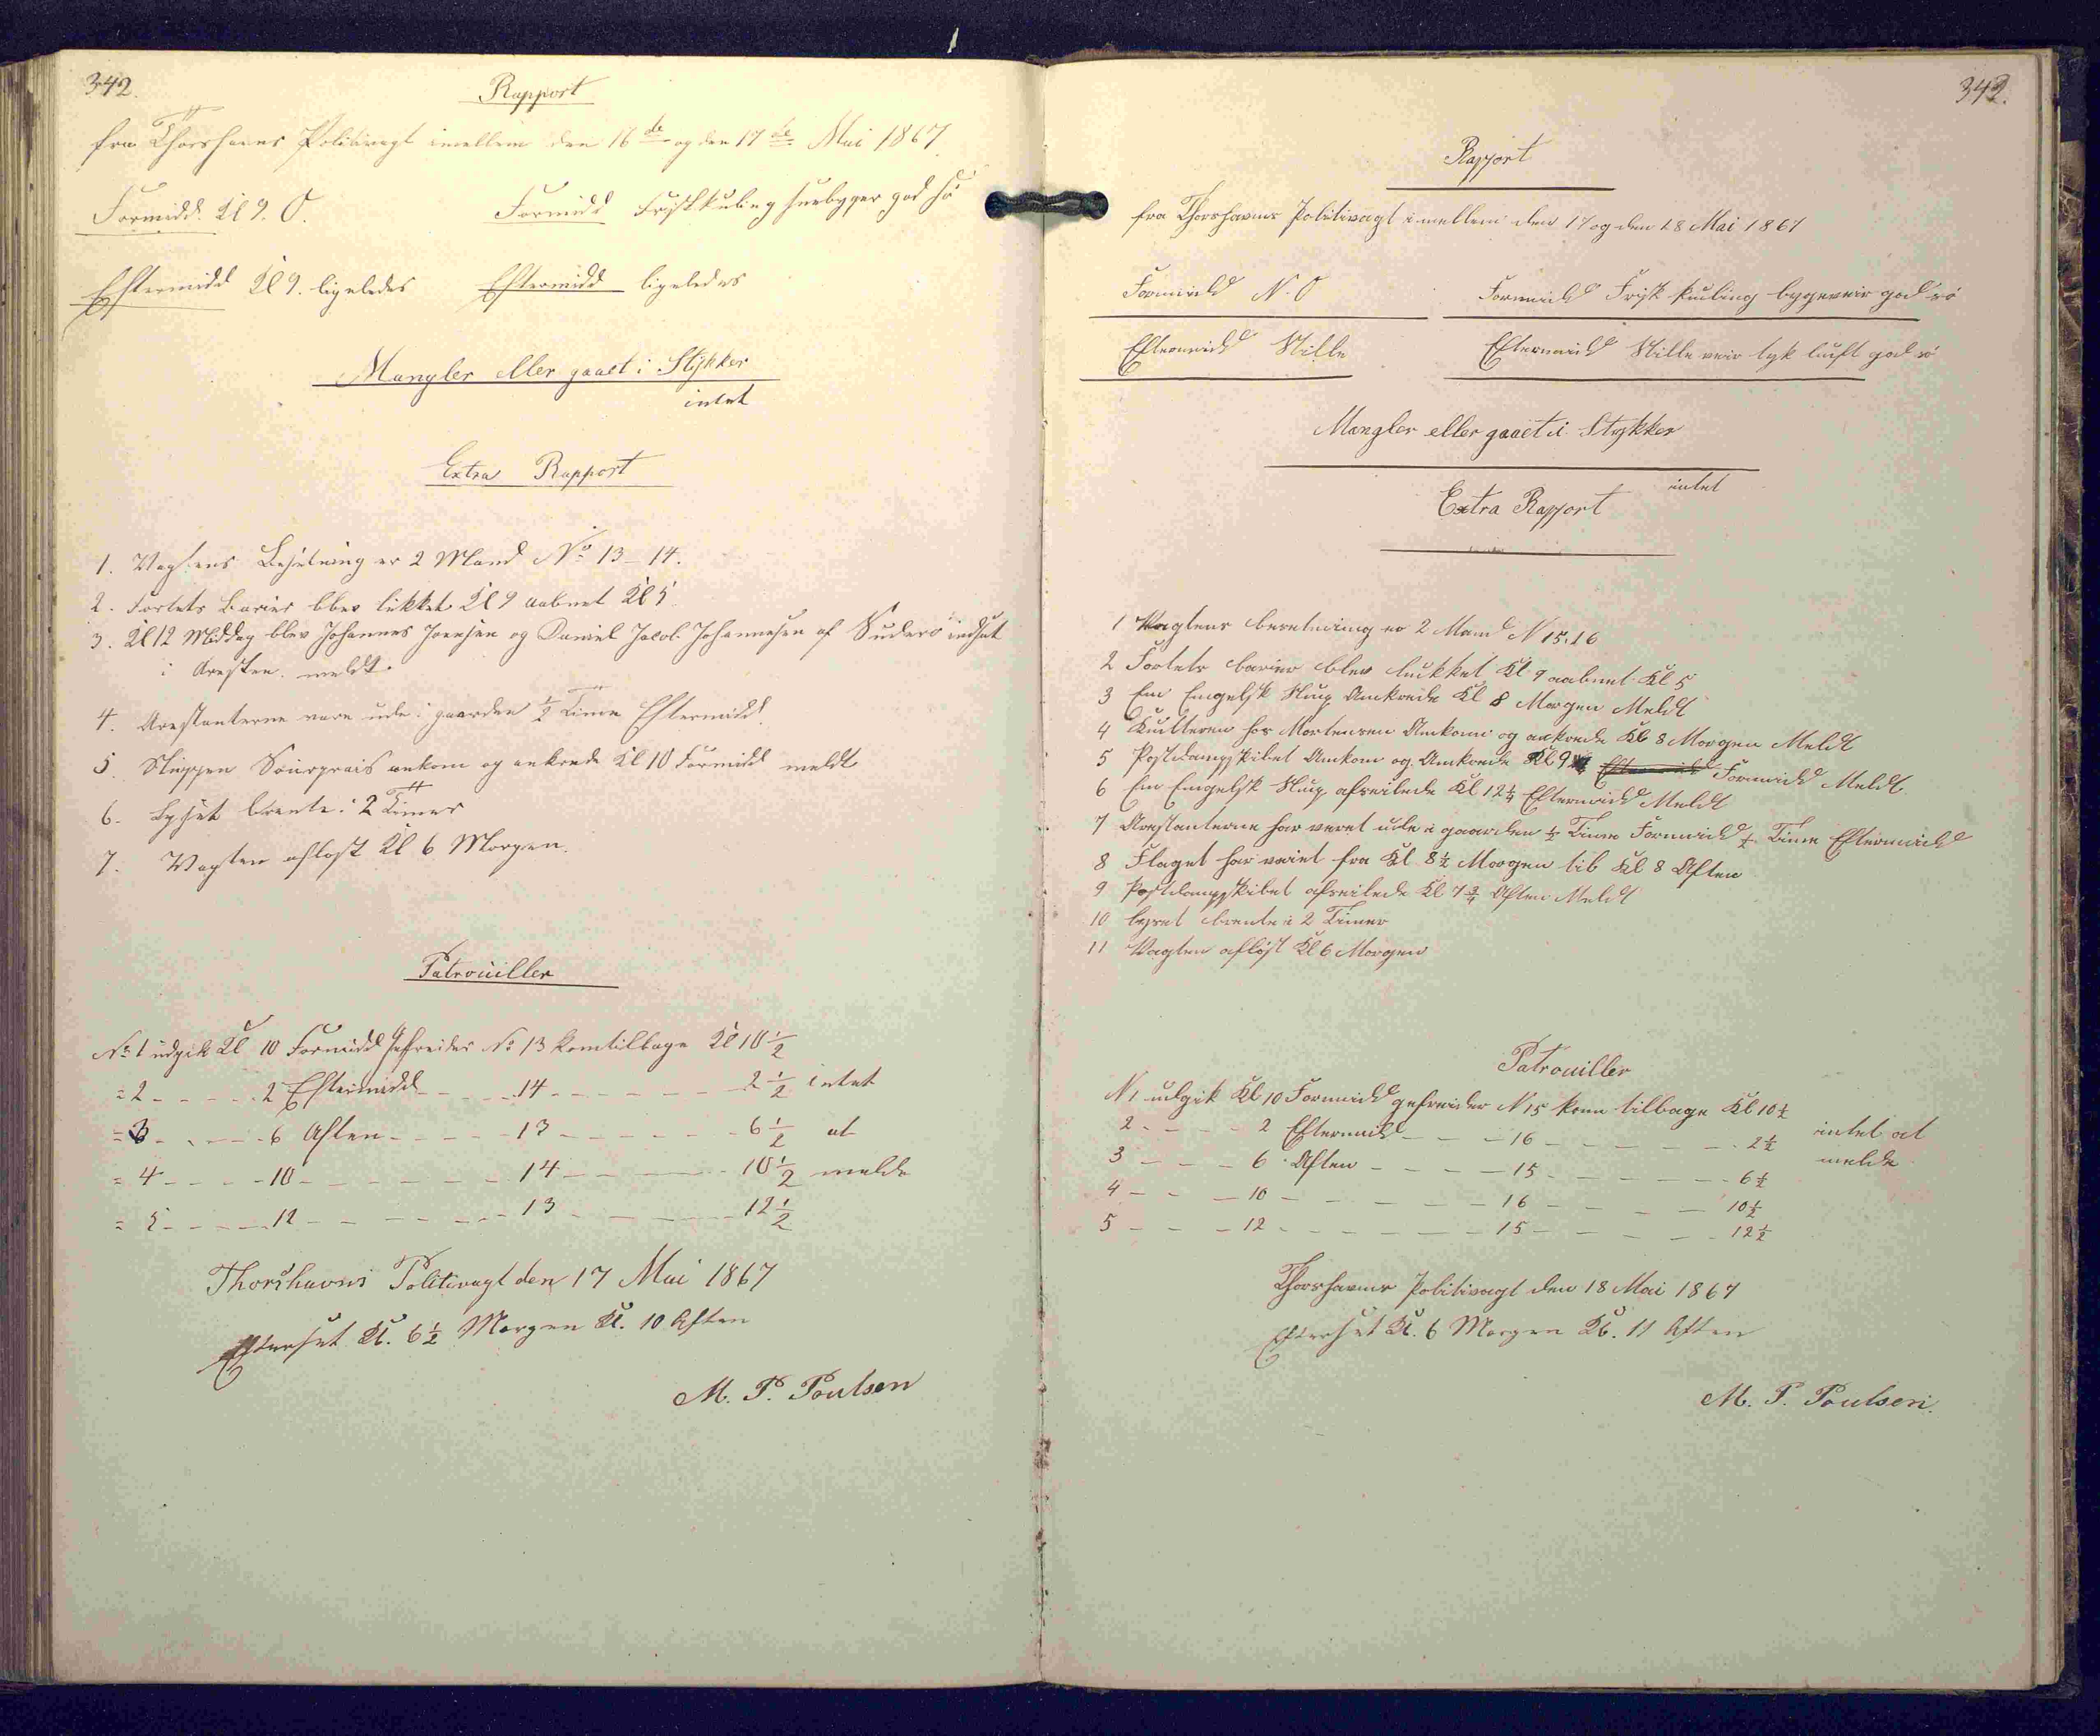 342.
Rapport
fra Thorshavns Politivagt imellem den 16de og den 17de Mai 1867
Formidd. Kl 9. O.
Formidd Friskkuling sneebyger god Sö
Eftermidd Kl 9. ligeledes
Eftermidd ligeledes
Mangler eller gaaet i Stykker
intet
Extra Rapport
1. Vagtens Besætning er 2 Mand No 13-14.
2. Fortets Barier blev lukket Kl 9 aabnet Kl 5
3. Kl 12 Middag blev Johannes Joensen og Daniel Jacob Johannesen af Suderö indsat
i Aresten. meldt.
4. Arestanterne vare ude i gaarden 1/2 Time Eftermidd.
5. Sluppen ankom og ankrede Kl 10 Formidd meldt
6. Lyset brente i 2 Timer
7. Vagten aflöst Kl 6 Morgen.
Patrouiller
No 1 udgik Kl 10 Formidd Gefreider No 13 kom tilbage Kl 10 1/2
= 2 - - - - 2 Eftermidd - - - 14 - - - - - 2 1/2 intet
= 3 - - - - 6 Aften - - - - 13 - - - - - 6 1/2 at
= 4 - - - - 10 - - - - - - 14 - - - - - 10 1/2 melde
= 5 - - - - 12 - - - - - - 13 - - - - - 12 1/2
Thorshavns Politivagt den 17 Mai 1867
Efterset Kl. 6 1/2 Morgen Kl. 10 Aften
M. P. Poulsen
343.
Rapport
fra Thorshavns Politivagt imellem den 17 og den 18 Mai 1867
Formidd N. O
Formidd Frisk kuling bygeveir god sö
Eftermidd Stille
Eftermidd Stille veir tyk luft god sö
Mangler eller gaaet i Stykker
intet
Extra Rapport
1 Vagtens besetning er 2 Mand N 15.16
2 Fortets barier blev lukket Kl 9 aabnet Kl 5
3 En Engelsk Slup Ankrede Kl 8 Morgen Meldt
4 Kutteren hos Mortensen Ankom og ankrede Kl 8 Morgen Meldt
5 Postdampskibet Ankom og Ankrede Kl 9 Eftermidd Formidd Meldt
6 En Engelsk Slup afseilede Kl 12 1/4 Eftermidd Meldt
7 Arestanterne har veret ude i gaarden 1/2 Time Formidd 1/2 Time Eftermidd
8 Flaget har veiet fra Kl 8 1/2 Morgen til Kl 8 Aften
9 Postdampskibet afseilede Kl 7 3/4 Aften Meldt
10 lyset brente i 2 Timer
11 Vagten aflöst Kl 6 Morgen
Patrouiller
N 1 udgik Kl 10 Formidd gefreider N 15 kom tilbage Kl 10 1/2
2 - - - - 2 Eftermidd - - - 16 - - - - - 2 1/2 intet at
3 - - - - 6 Aften - - - - 15 - - - - - 6 1/2 melde
4 - - - 10 - - - - - - 16 - - - - 10 1/2
5 - - - 12 - - - - - - 15 - - - - 12 1/2
Thorshavns Politivagt den 18 Mai 1867
Efterset Kl. 6 Morgen Kl. 11 Aften
M. P. Poulsen.